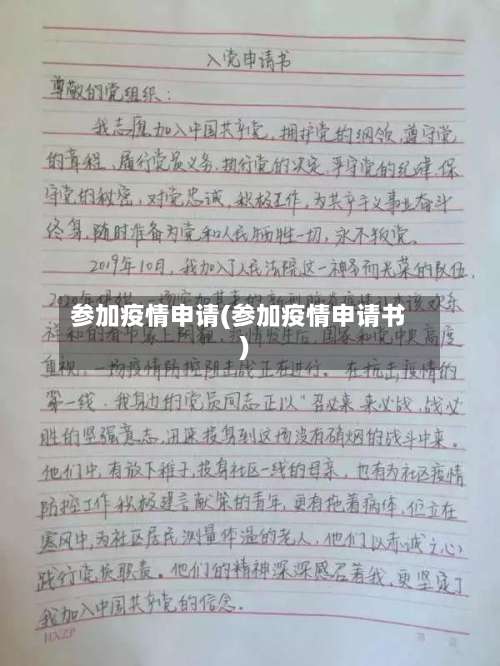 入党申请书
尊敬的党组织:
我志愿加入中国共产党,拥护党的纲领,遵守党
的章程,履行党员义务,执行党的决定,严守党的纪律,保
守党的秘密,对党忠诚,积极工作,为共产主义事业奋斗
终身,随时准备为党和人民牺牲一切,永不叛党。
2019年10月,我加入了人民法院这一神圣而光荣的队伍,
参加疫情申请(参加疫情申请书
)
重视,一场疫情防控阻击战正在进行。在抗击疫情的
第一线,我身边的党员同志正以"召必来,来必战,战必
胜的坚强意志,迅速投身到这场没有硝烟的战斗中来。
他们中,有放下稚子,投身社区一线的母亲,也有为社区疫情
防控工作积极建言献策的青年,更有拖着病体,伫立在
寒风中,为社区居民测量体温的老人,他们以赤诚之心
践行党员职责。他们的精神深深感召着我,更坚定了
我加入中国共产党的信念。
HXZP
第 页